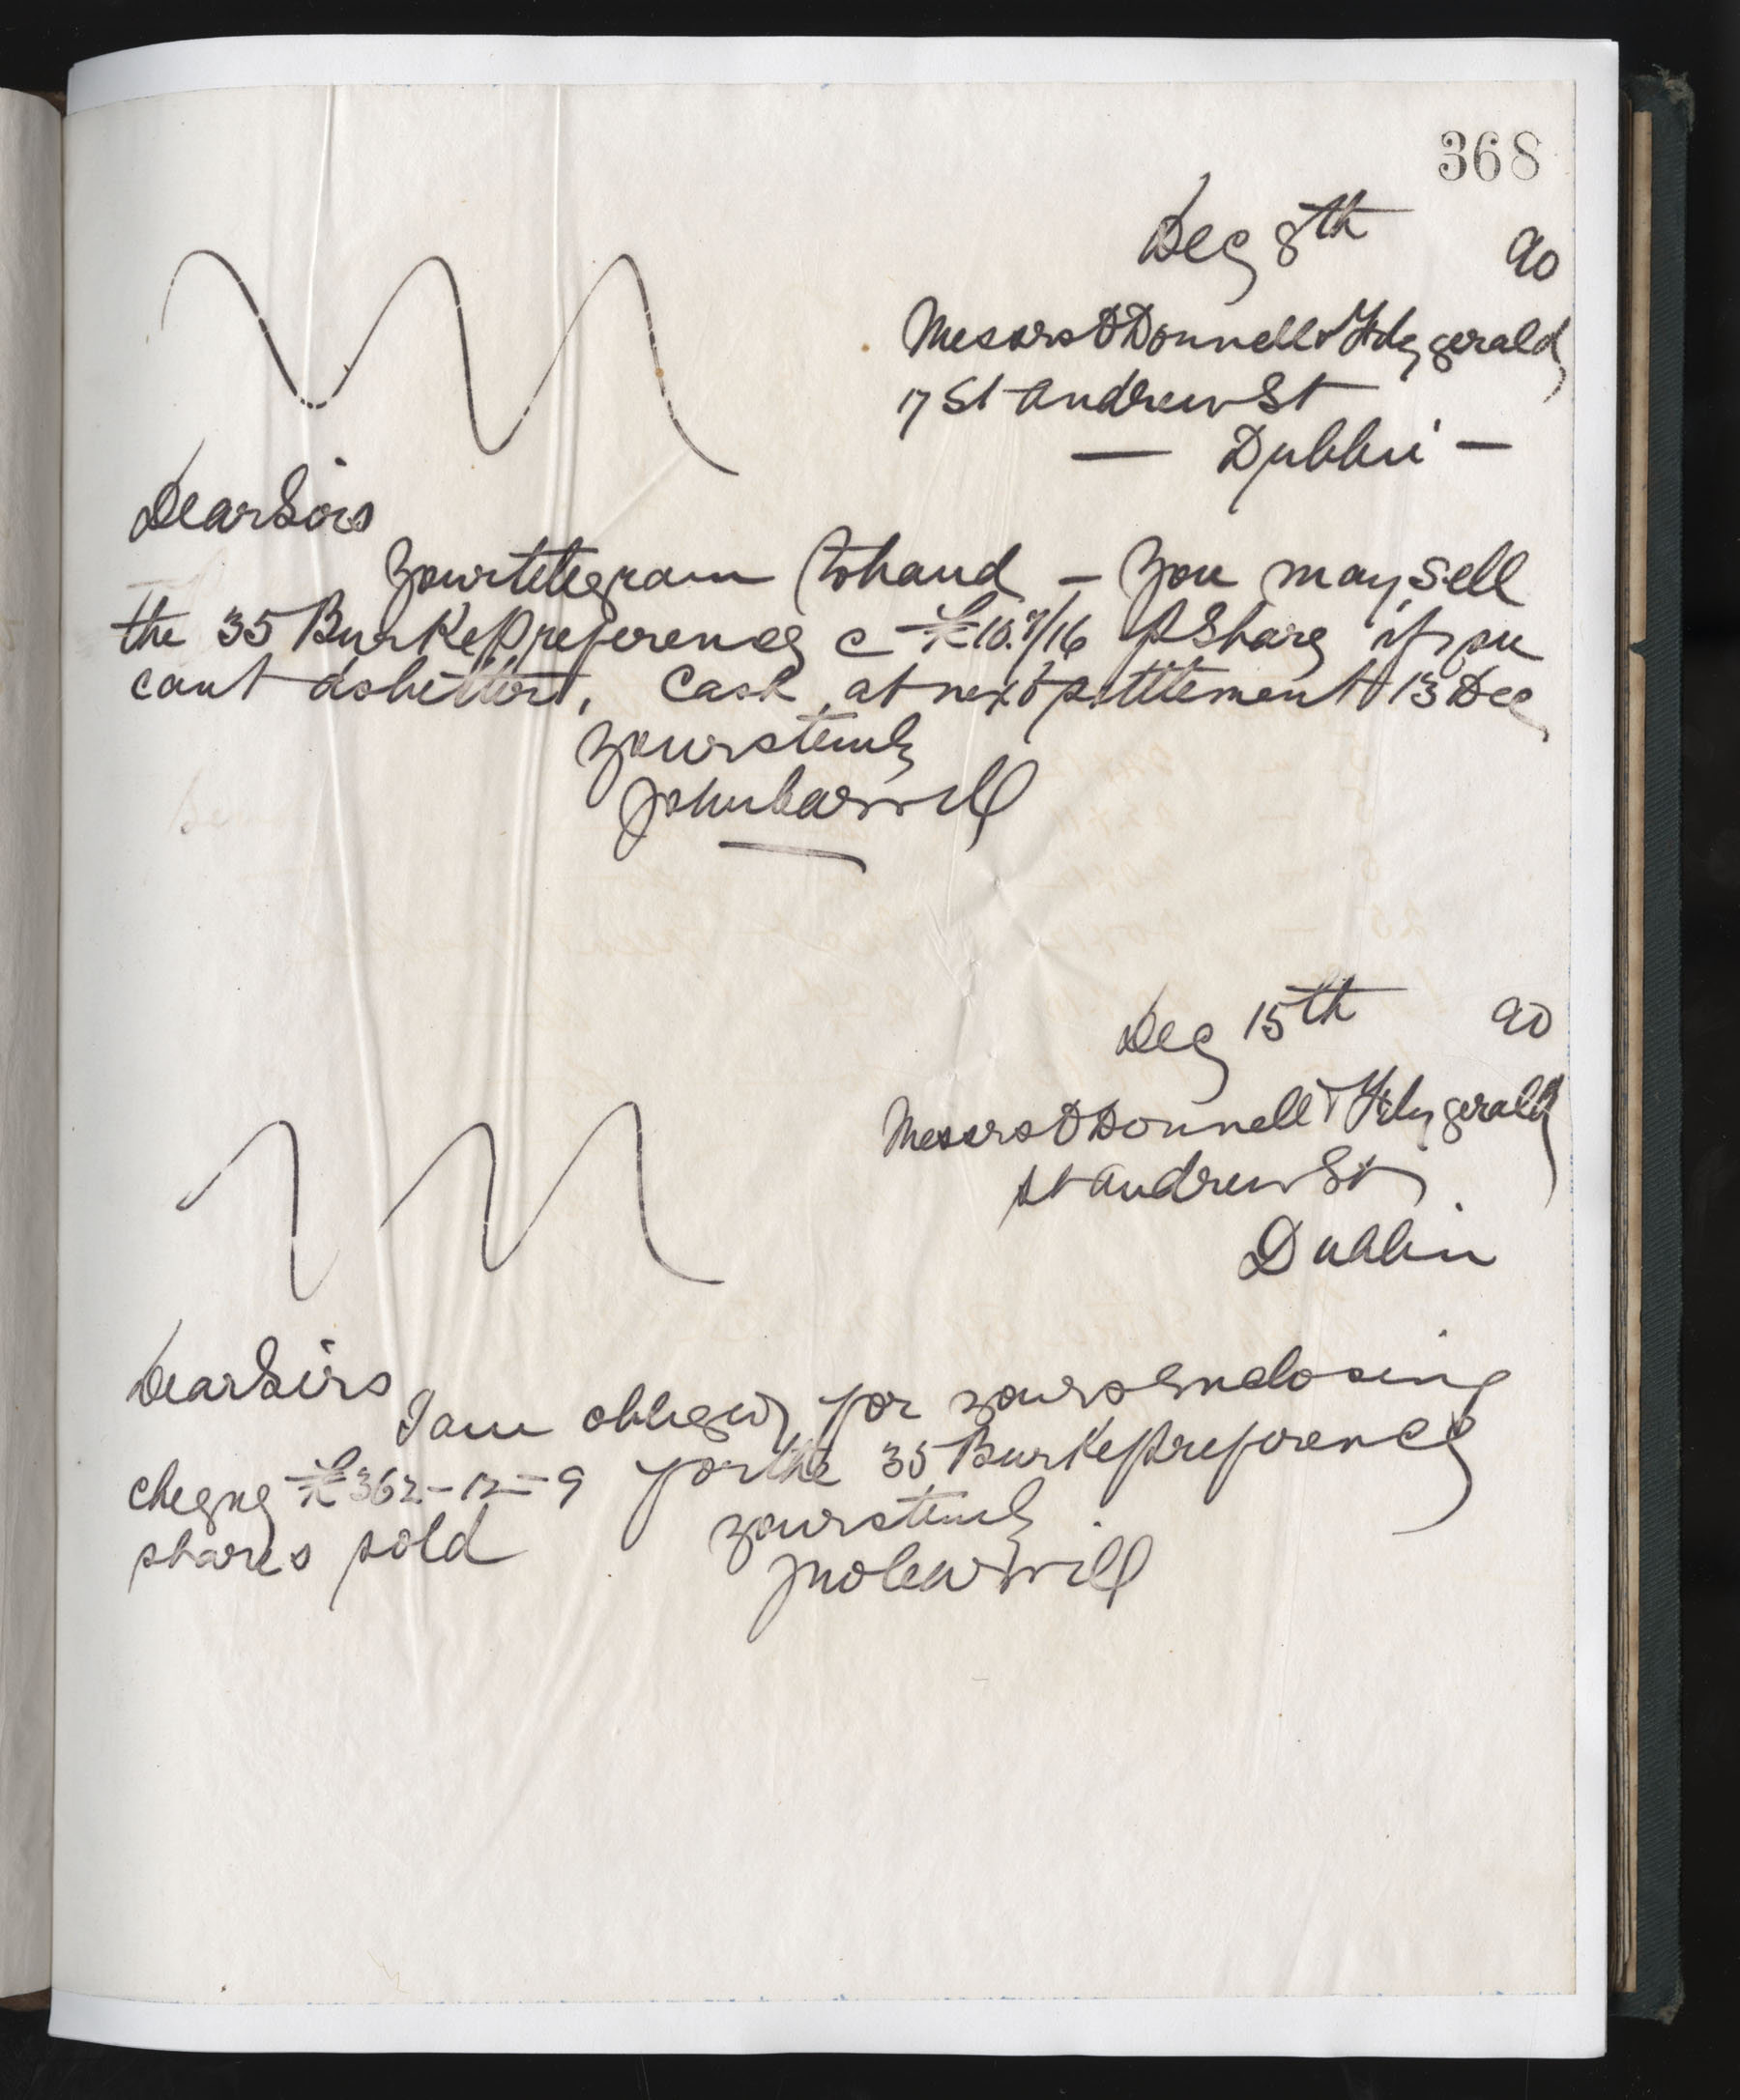 368
Dec 8th 90
Messrs O'Donnell & Fitzgerald
17 St Andrew St
— Dublin —
Dear Sirs
Your telegram to hand — you may sell
the 35 Burke preference @ £10.7/16 p Share if you
cant do better, Cash at next settlement 13 Dec
Yours truly
John
Dec 15th 90
Messrs O'Donnell & Fitzgerald
St Andrew St
Dublin
Dear Sirs
I am obliged for yours enclosing
cheque £362-12-9 for the 35 Burke preference
shares sold
Yours truly
Jno